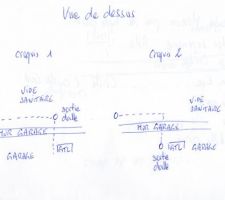 Vue de dessus
Croquis 1
Croquis 2
VIDE
SANITAIRE
sortie
dalle
MUR GARAGE
GARAGE
GTL
VIDE
SANITAIRE
MUR GARAGE
GTL GARAGE
sortie
dalle